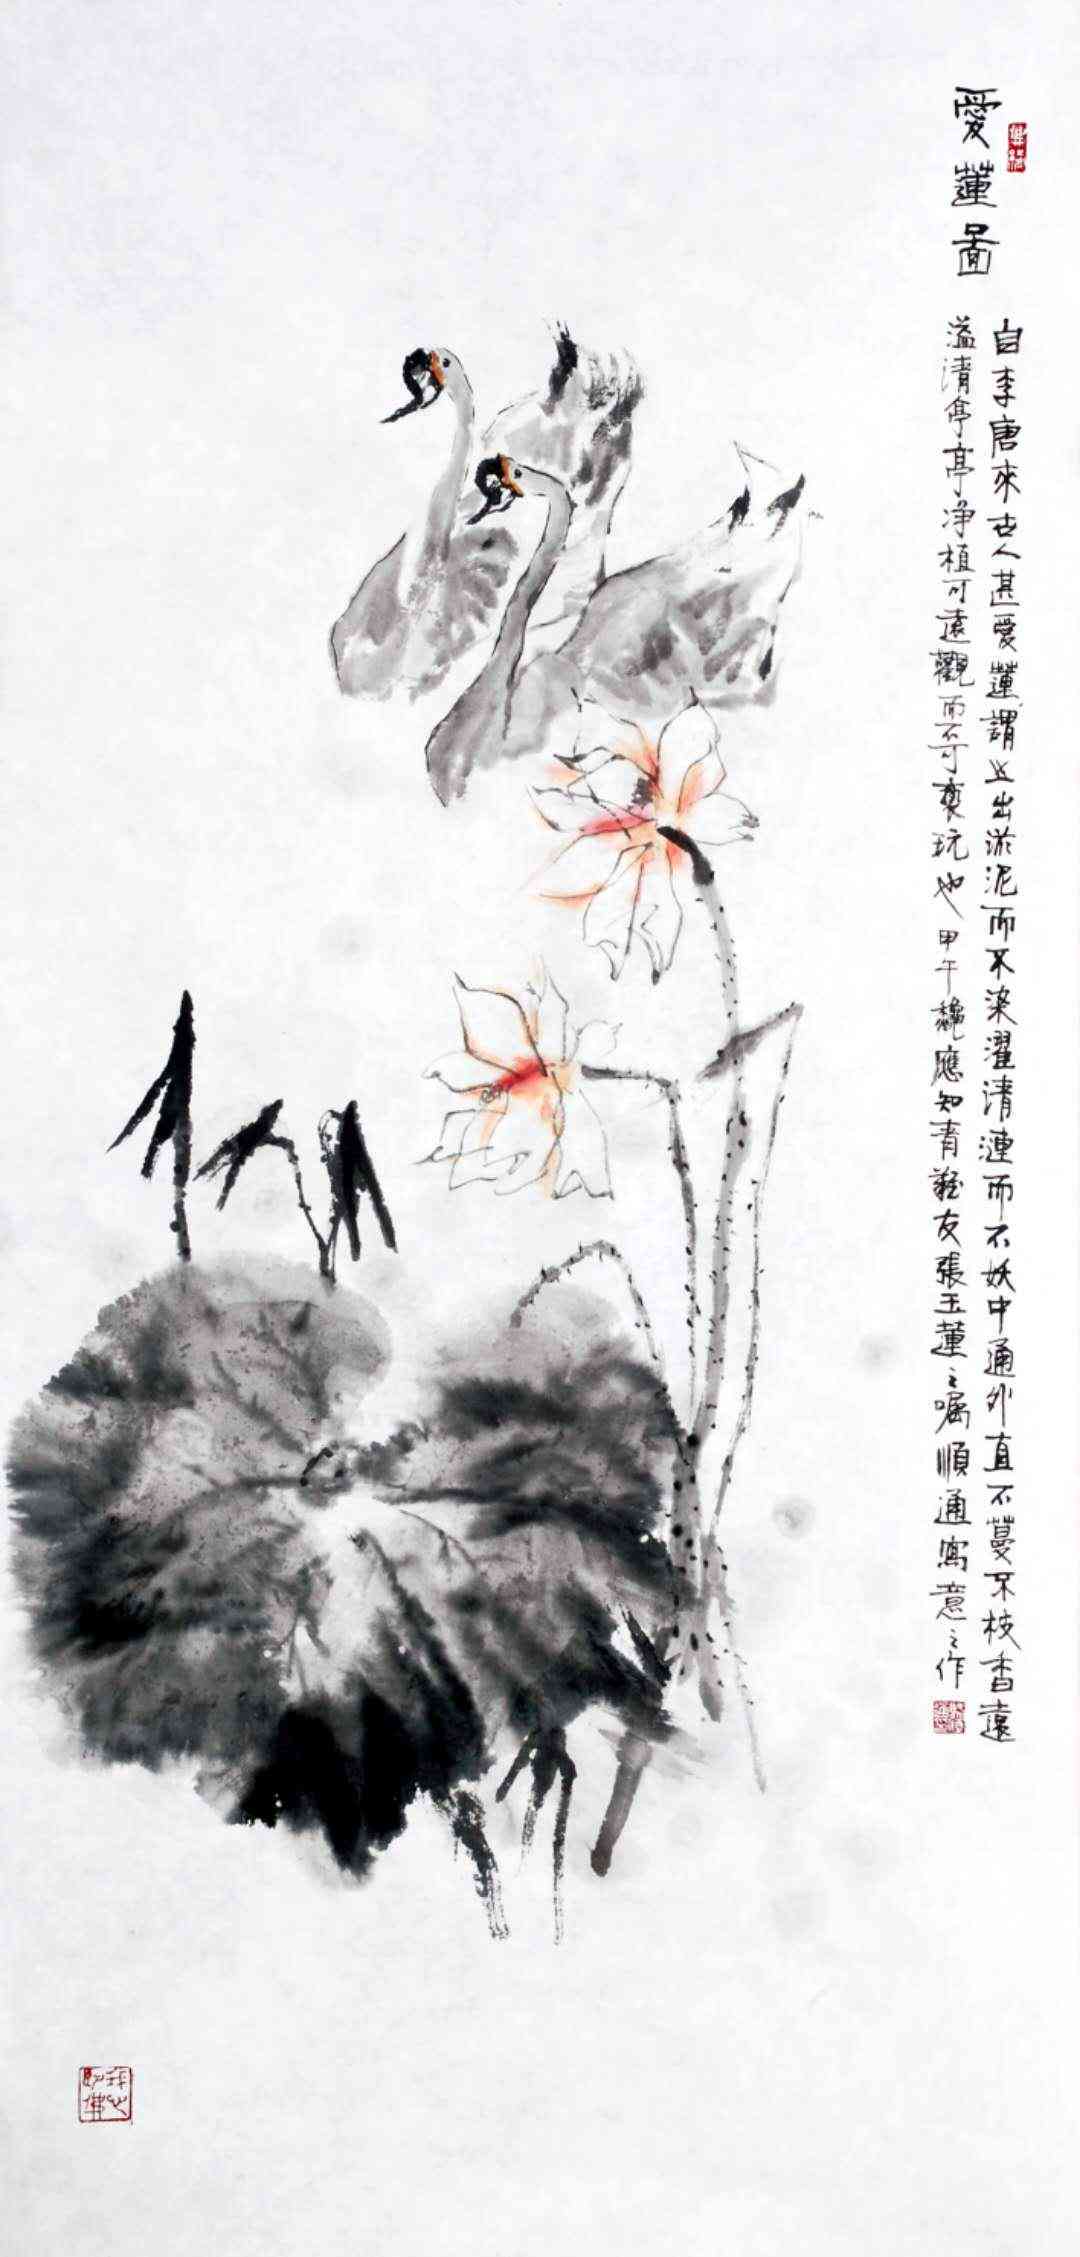 愛蓮圖
自李唐來世人甚愛蓮謂此出淤泥而不染濯清漣而不妖中通外直不蔓不枝香遠
溢清亭亭净植可遠觀而不可褻玩也甲午應知青難友張玉蓮之囑順通寫意之作